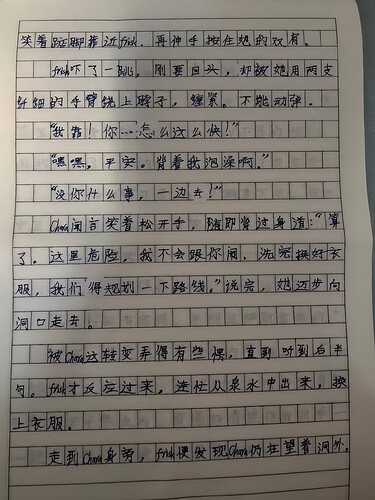 笑着踮脚靠近frisk，再伸手按住她的双肩。
frisk吓了一跳，刚要回头，却被她用两支
纤细的手臂绕上脖子，缠紧。不能动弹。
“我靠！你……怎么这么快！”
“嘿嘿，平安。背着我泡澡啊。”
“没你什么事，一边去！”
Chara闻言笑着松开手，随即背过身道：“算
了。这里危险，我不会跟你闹。洗完换好衣
服，我们得规划一下路线。”说完，她迈步向
洞口走去。
被Chara这转变弄得有些愣，直到听到后半
句。frisk才反应过来。连忙从泉水中出来，换
上衣服。
走到Chara身旁，frisk便发现Chara仍在望着洞外。